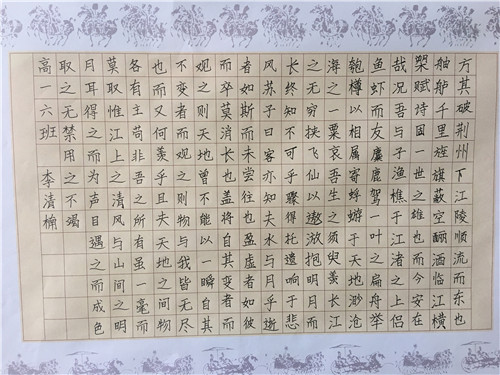 方其破荆州下江陵顺流而东也
舳舻千里旌旗蔽空酾酒临江横
槊赋诗固一世之雄也而今安在
哉况吾与子渔樵于江渚之上侣
鱼虾而友麋鹿驾一叶之扁舟举
匏樽以相属寄蜉蝣于天地渺沧
海之一粟哀吾生之须臾羡长江
之无穷挟飞仙以遨游抱明月而
长终知不可乎骤得托遗响于悲
风苏子曰客亦知夫水与月乎逝
者如斯而未尝往也盈虚者如彼
而卒莫消长也盖将自其变者而
观之则天地曾不能以一瞬自其
不变者而观之则物与我皆无尽
也而又何羡乎且夫天地之间物
各有主苟非吾之所有虽一毫而
莫取惟江上之清风与山间之明
月耳得之而为声目遇之而成色
取之无禁用之不竭
高一六班 李清楠